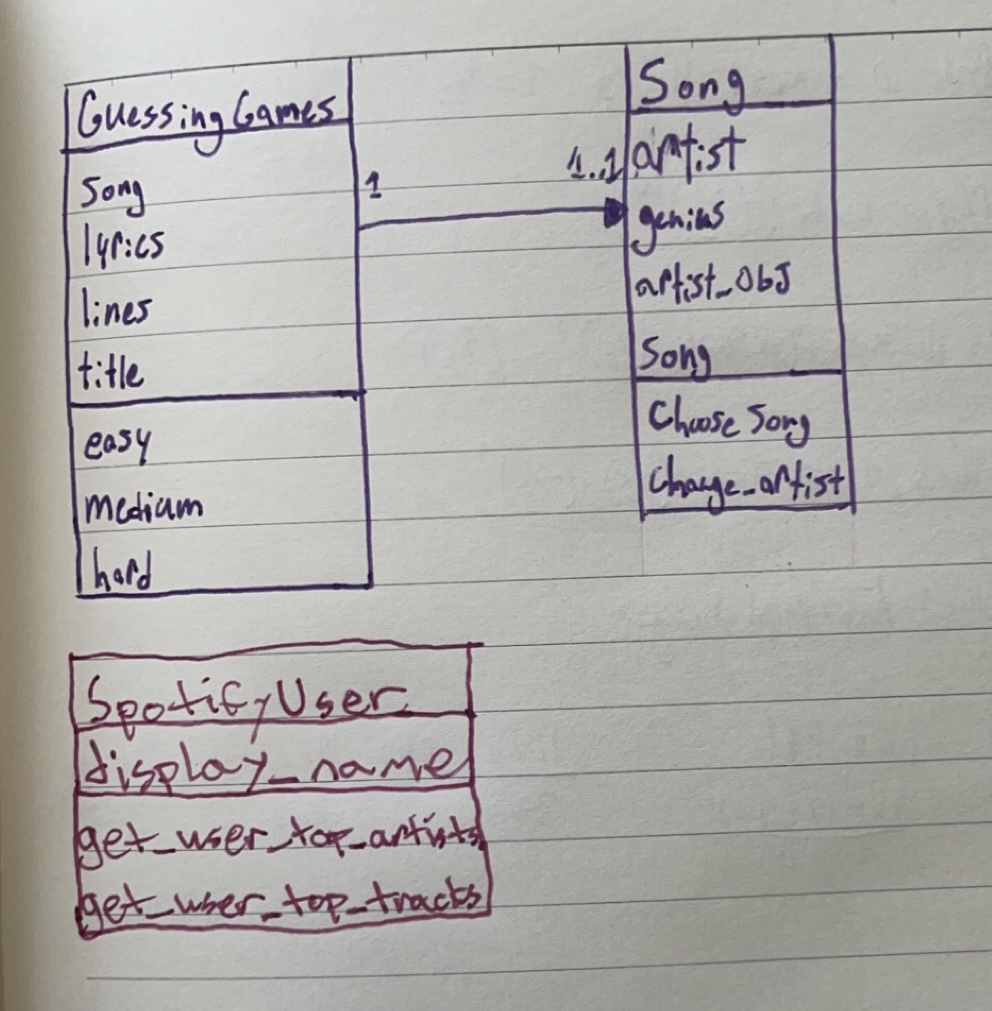 GuessingGames
song
lyrics
lines
title
easy
medium
hard
1
1..1
Song
artist
genius
artist_obj
Song
Choose Song
Change_artist
SpotifyUser
display_name
get_user_top_artists
get_user_top_tracks